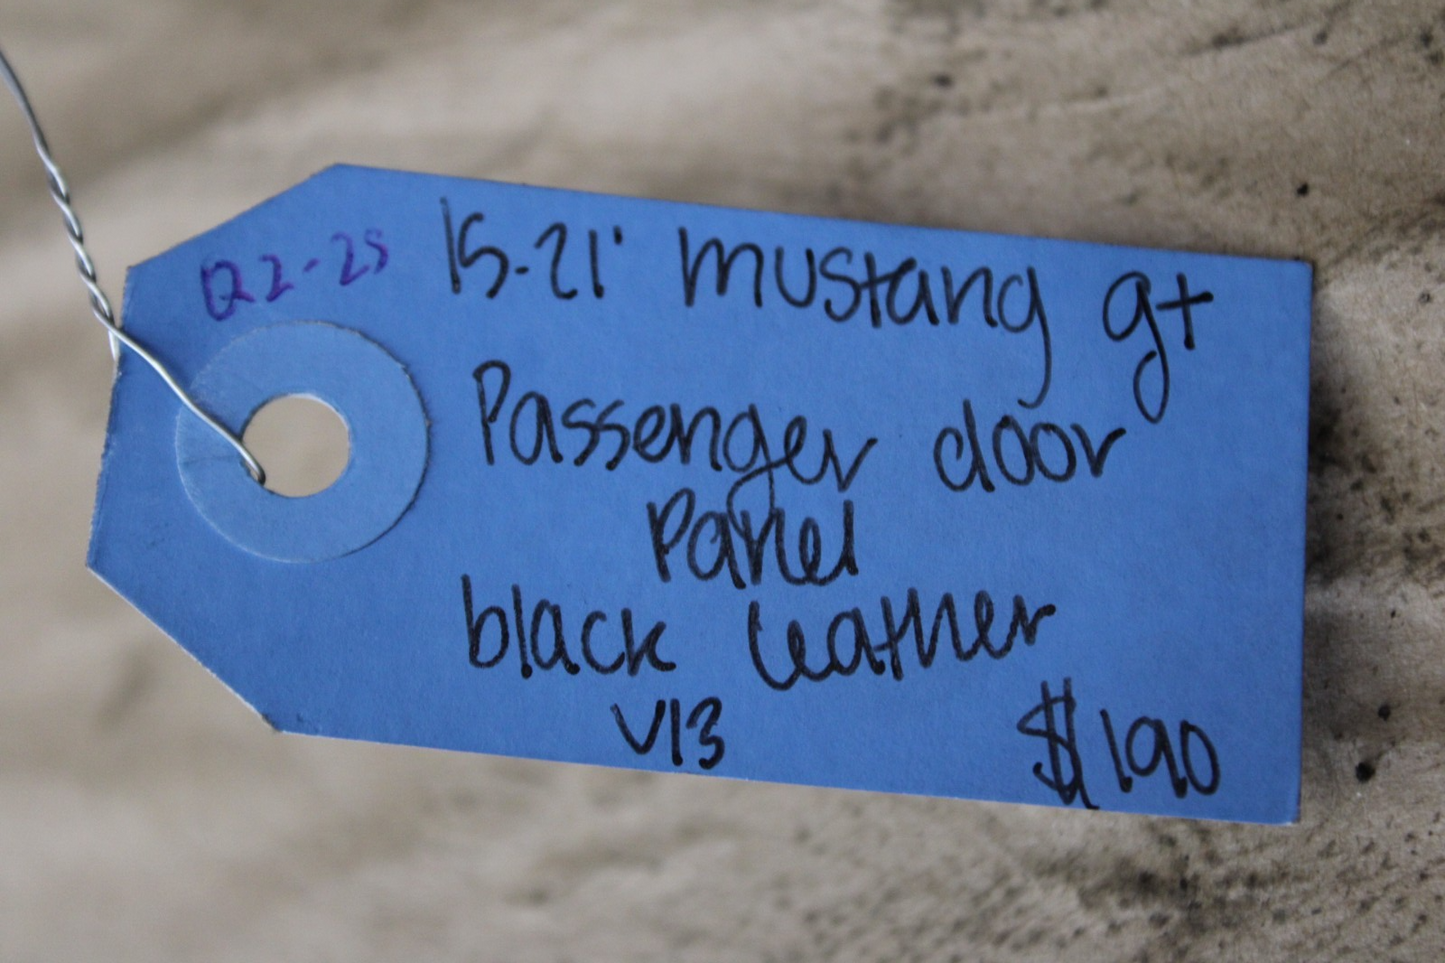 Q2-25
15-21' mustang gt
Passenger door
Panel
black leather
V13
$190